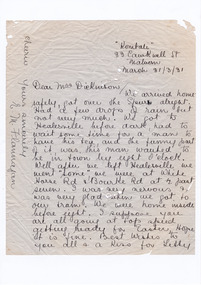 "Ronbali"
33 Cawkwell St
Malvern
March 31/3/31
Dear Mrs Dickinson,
We arrived home
safely, got over the Spur alright,
Had a few drops of rain but
not very much. We got to
Healesville before dark had to
wait some time for a man to
have his tea, and the funny part
of it was this man wanted to
be in town by eight o'clock.
Well after we left Healesville we
went "some" we were at White
Horse Rd & Bourke Rd at ¼ past
seven. I was very nervous &
was very glad when we got to
our tram. We were home
before eight. I suppose you
are all going at top speed
getting ready for Easter, Hope
it is fine. Best Wishes to
you all & a Kiss for Letty
Yours sincerely
J. M. Flannagan